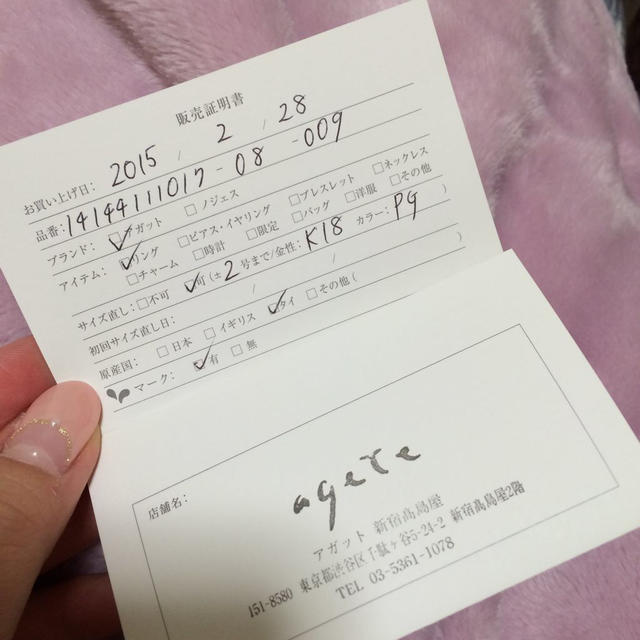 販売証明書
お買い上げ日： 2015 / 2 / 28
品番：14144111017-08-009
ブランド： ☑アガット □ノジェス
アイテム： ☑リング □ピアス・イヤリング □ブレスレット □ネックレス
□チャーム □時計 □限定 □バッグ □洋服 □その他
サイズ直し：□不可 ☑可(± 2 号まで/金性： K18 カラー： PG )
初回サイズ直し日： / /
原産国： □日本 □イギリス ☑タイ □その他( )
マーク： ☑有 □無
店舗名：
agete
アガット 新宿髙島屋
151-8580 東京都渋谷区千駄ヶ谷5-24-2 新宿髙島屋2階
TEL 03-5361-1078